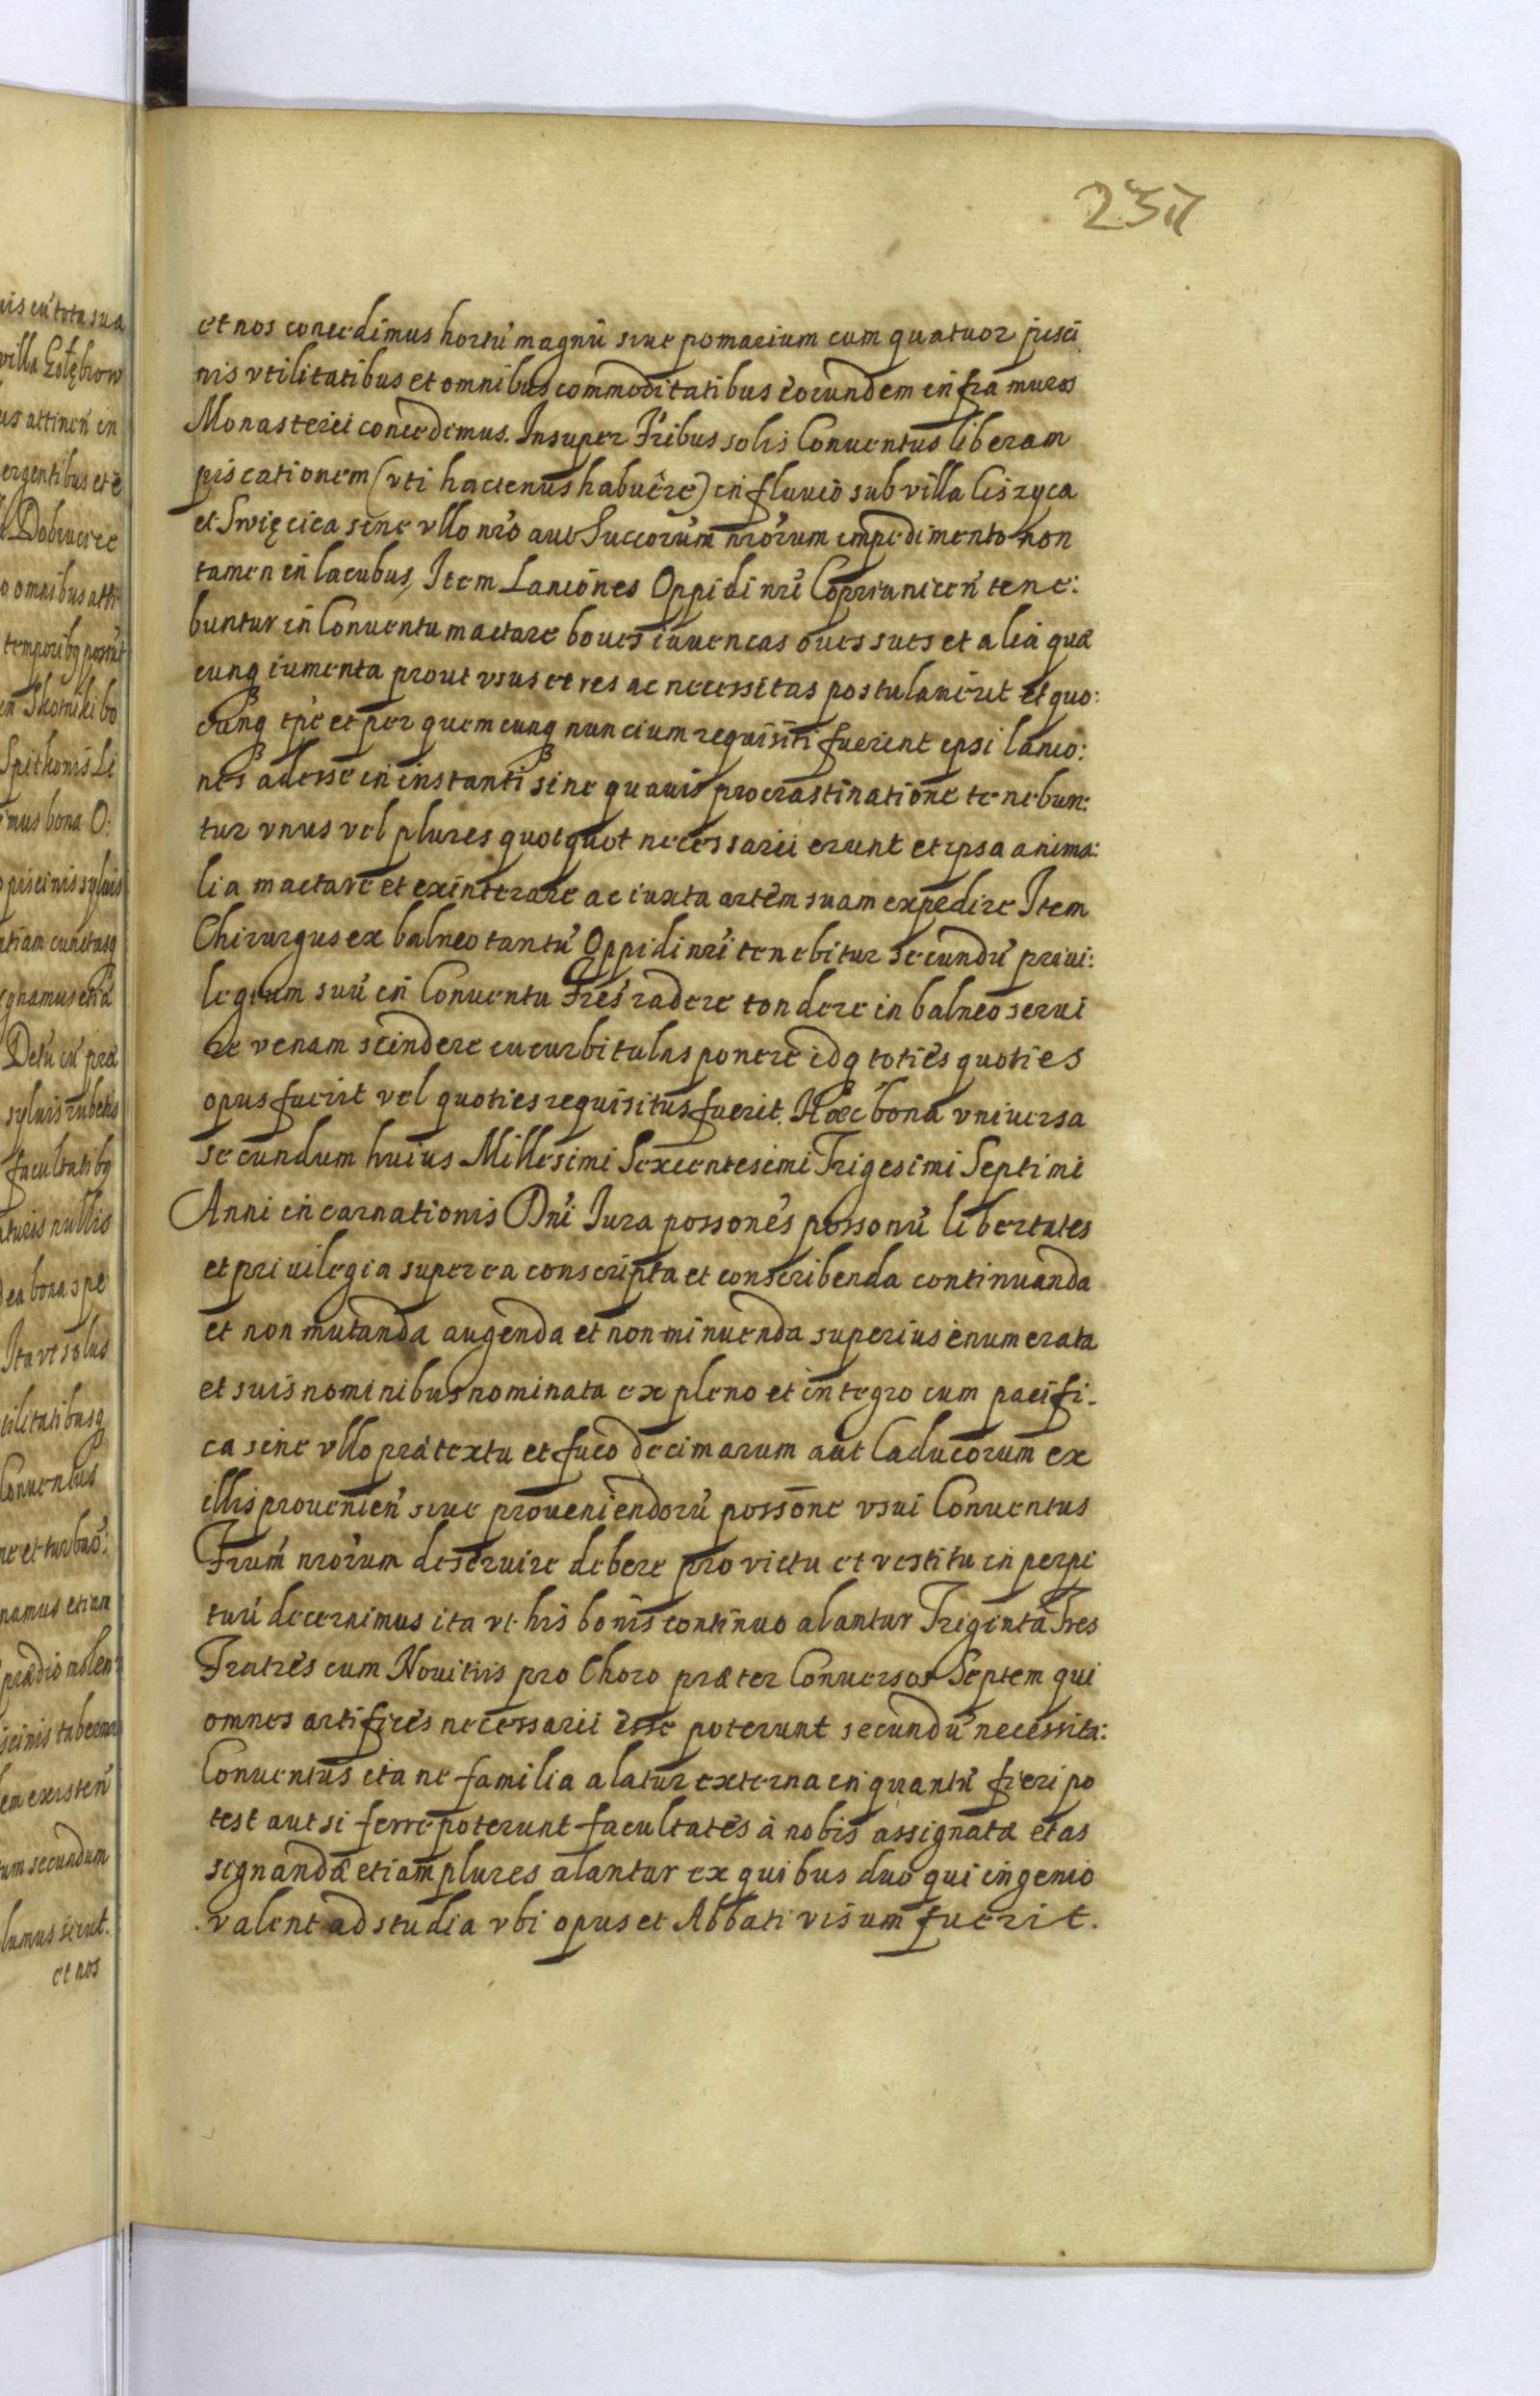 237
et nos concedimus hortú magnú siue pomarium cum quatuor pisci
nis vtilitatibus et omnibus commoditatibus eorundem infra muros
Monasterii concedimus. Insuper Fribus solis Conuentus liberam
piscationem (vti hactenus habuêre) in fluuio sub villa Ciszyca
et Święcica sine vllo nró aut Succorúm nrórum impedimento non
tamen in lacubus, Item Laniones Oppidi nrí Coprivnicen tene:
buntur in Conuentu mactare boues iuuencas oues sues et alia quæ
cunq iumenta prout vsus et res ac necessitas postulauerit et quo:
cunq tpé et per quemcunq nuncium requisiti fuerint ipsi lanio:
nes adesse in instanti sine quauis procrastinatione tenebun:
tur vnus vel plures quotquot necessarii erunt et ipsa anima:
lia mactare et exinterare ac iuxta artem suam expedire Item
Chirurgus ex balneo tantú Oppidi nrí tenebitur secundú priui:
legium suú in Conuentu Frés radere tondere in balneo serui
re venam scindere cucurbitulas ponere idq toties quoties
opus fuerit vel quoties requisitus fuerit. Hæc bona vniuersa
secundum huius Millesimi Sexcentesimi Trigesimi Septimi
Anni incarnationis Dní Iura possonés possonú libertates
et priuilegia super ea conscripta et conscribenda continuanda
et non mutanda augenda et non minuenda superius enumerata
et suis nominibus nominata ex pleno et integro cum pacifi-
ca sine vllo prætextu et fuco decimarum aut Caducorum ex
illis prouenień siue proueniendorú possone vsui Conuentus
Frúm nrórum deseruire debere pro victu et vestitu in perpe
tuú decernimus ita vt his bonis continuo alantur Triginta Tres
Fratres cum Nouitiis pro Choro præter Conuersos Septem qui
omnes artifices necessarii esse poterunt secundú necessita:
Conuentus ita ne familia alatur externa in quantú fieri po
test aut si ferre poterunt facultates à nobis assignatæ et as
signandæ etiam plures alantur ex quibus duo qui ingenio
valent ad studia vbi opus et Abbati visum fuerit.